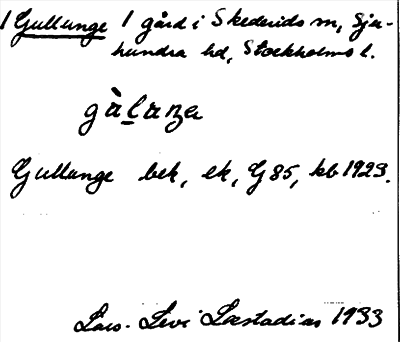 1 Gullunge 1 gård i Skederids sn, Sju-
hundra hd, Stockholms l.
gàlaŋa
Gullunge bek, ek, G85, kb 1923.
Lars-Levi Læstadius 1933